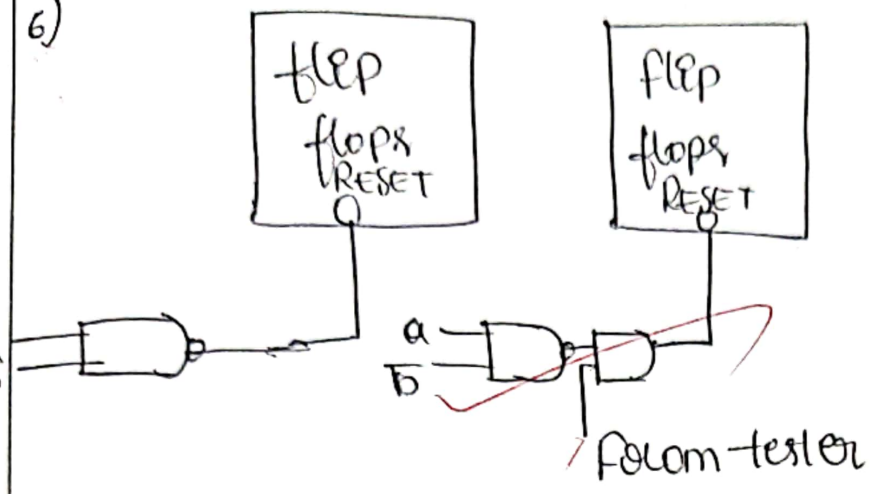 6)
flip
flops
RESET
flip
flops
RESET
a
b
from tester